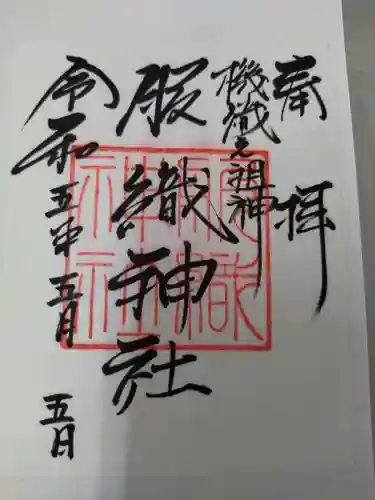 奉拝
機織之祖神
服織神社
令和五年五月五日
服織神社